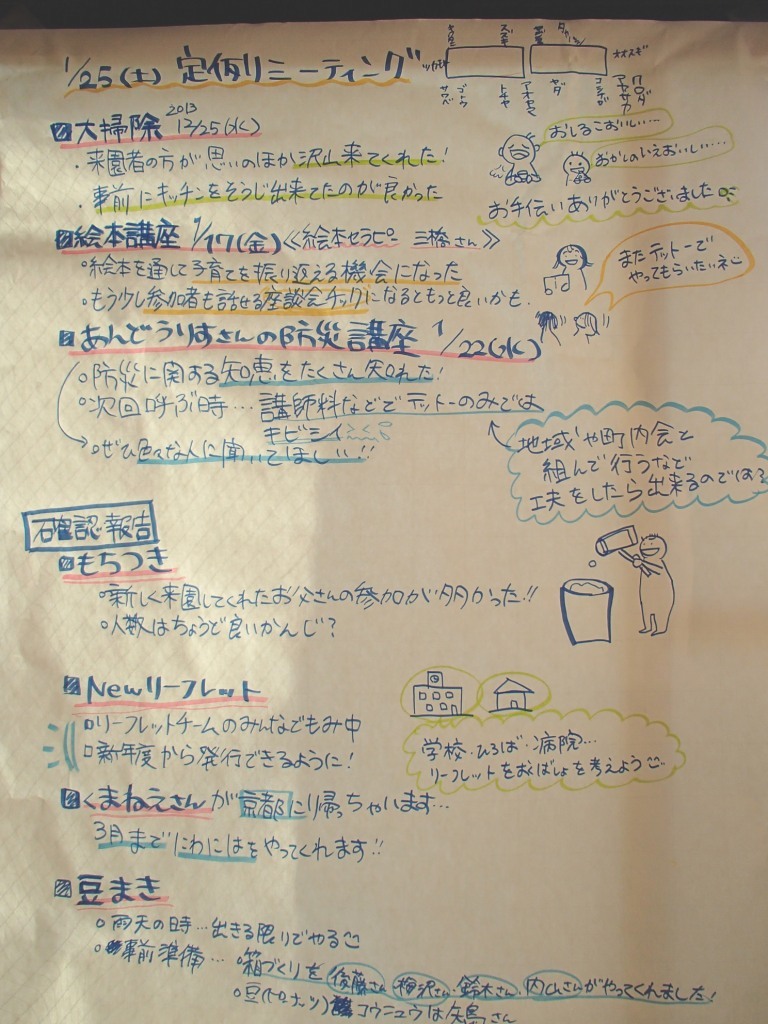 1/25(土) 定例ミーティング
オオスギ
クロダ
アサカ
ヤダ
アオヤマ
トチヤ
ゴトウ
サワベ
大掃除 2013 12/25(水)
・来園者の方が思いのほか沢山来てくれた!
・事前にキッチンをそうじ出来てたのが良かった
おしるこおいしい…
おかしのいえおいしい…
お手伝いありがとうございました
絵本講座 1/17(金)≪絵本セラピー 三橋さん≫
○絵本を通して子育てを振り返える機会になった
○もう少し参加者も話せる座談会チックになるともっと良いかも.
またテットーで
やってもらいたいネ
あんどうりすさんの防災講座 1/22(水)
○防災に関する知恵をたくさん知れた!
○次回呼ぶ時…講師料などでテットーのみでは
キビシイ
○ぜひ色々な人に聞いてほしい!!
地域や町内会と
組んで行うなど
工夫をしたら出来るのでは?
確認・報告
もちつき
○新しく来園してくれたお父さんの参加が多かった!!
○人数はちょうど良いかんじ?
Newリーフレット
□リーフレットチームのみんなでもみ中
□新年度から発行できるように!
学校・ひろば・病院…
リーフレットをおくばしょを考えよう
くまねえさんが京都に帰っちゃいます…
3月までにわにはをやってくれます!!
豆まき
○雨天の時…出きる限りでやる
○事前準備…・箱づくりを後藤さん 梅沢さん・鈴木さん 内山さんがやってくれました!
・豆(ドーナッツ)コウニュウは矢島さん